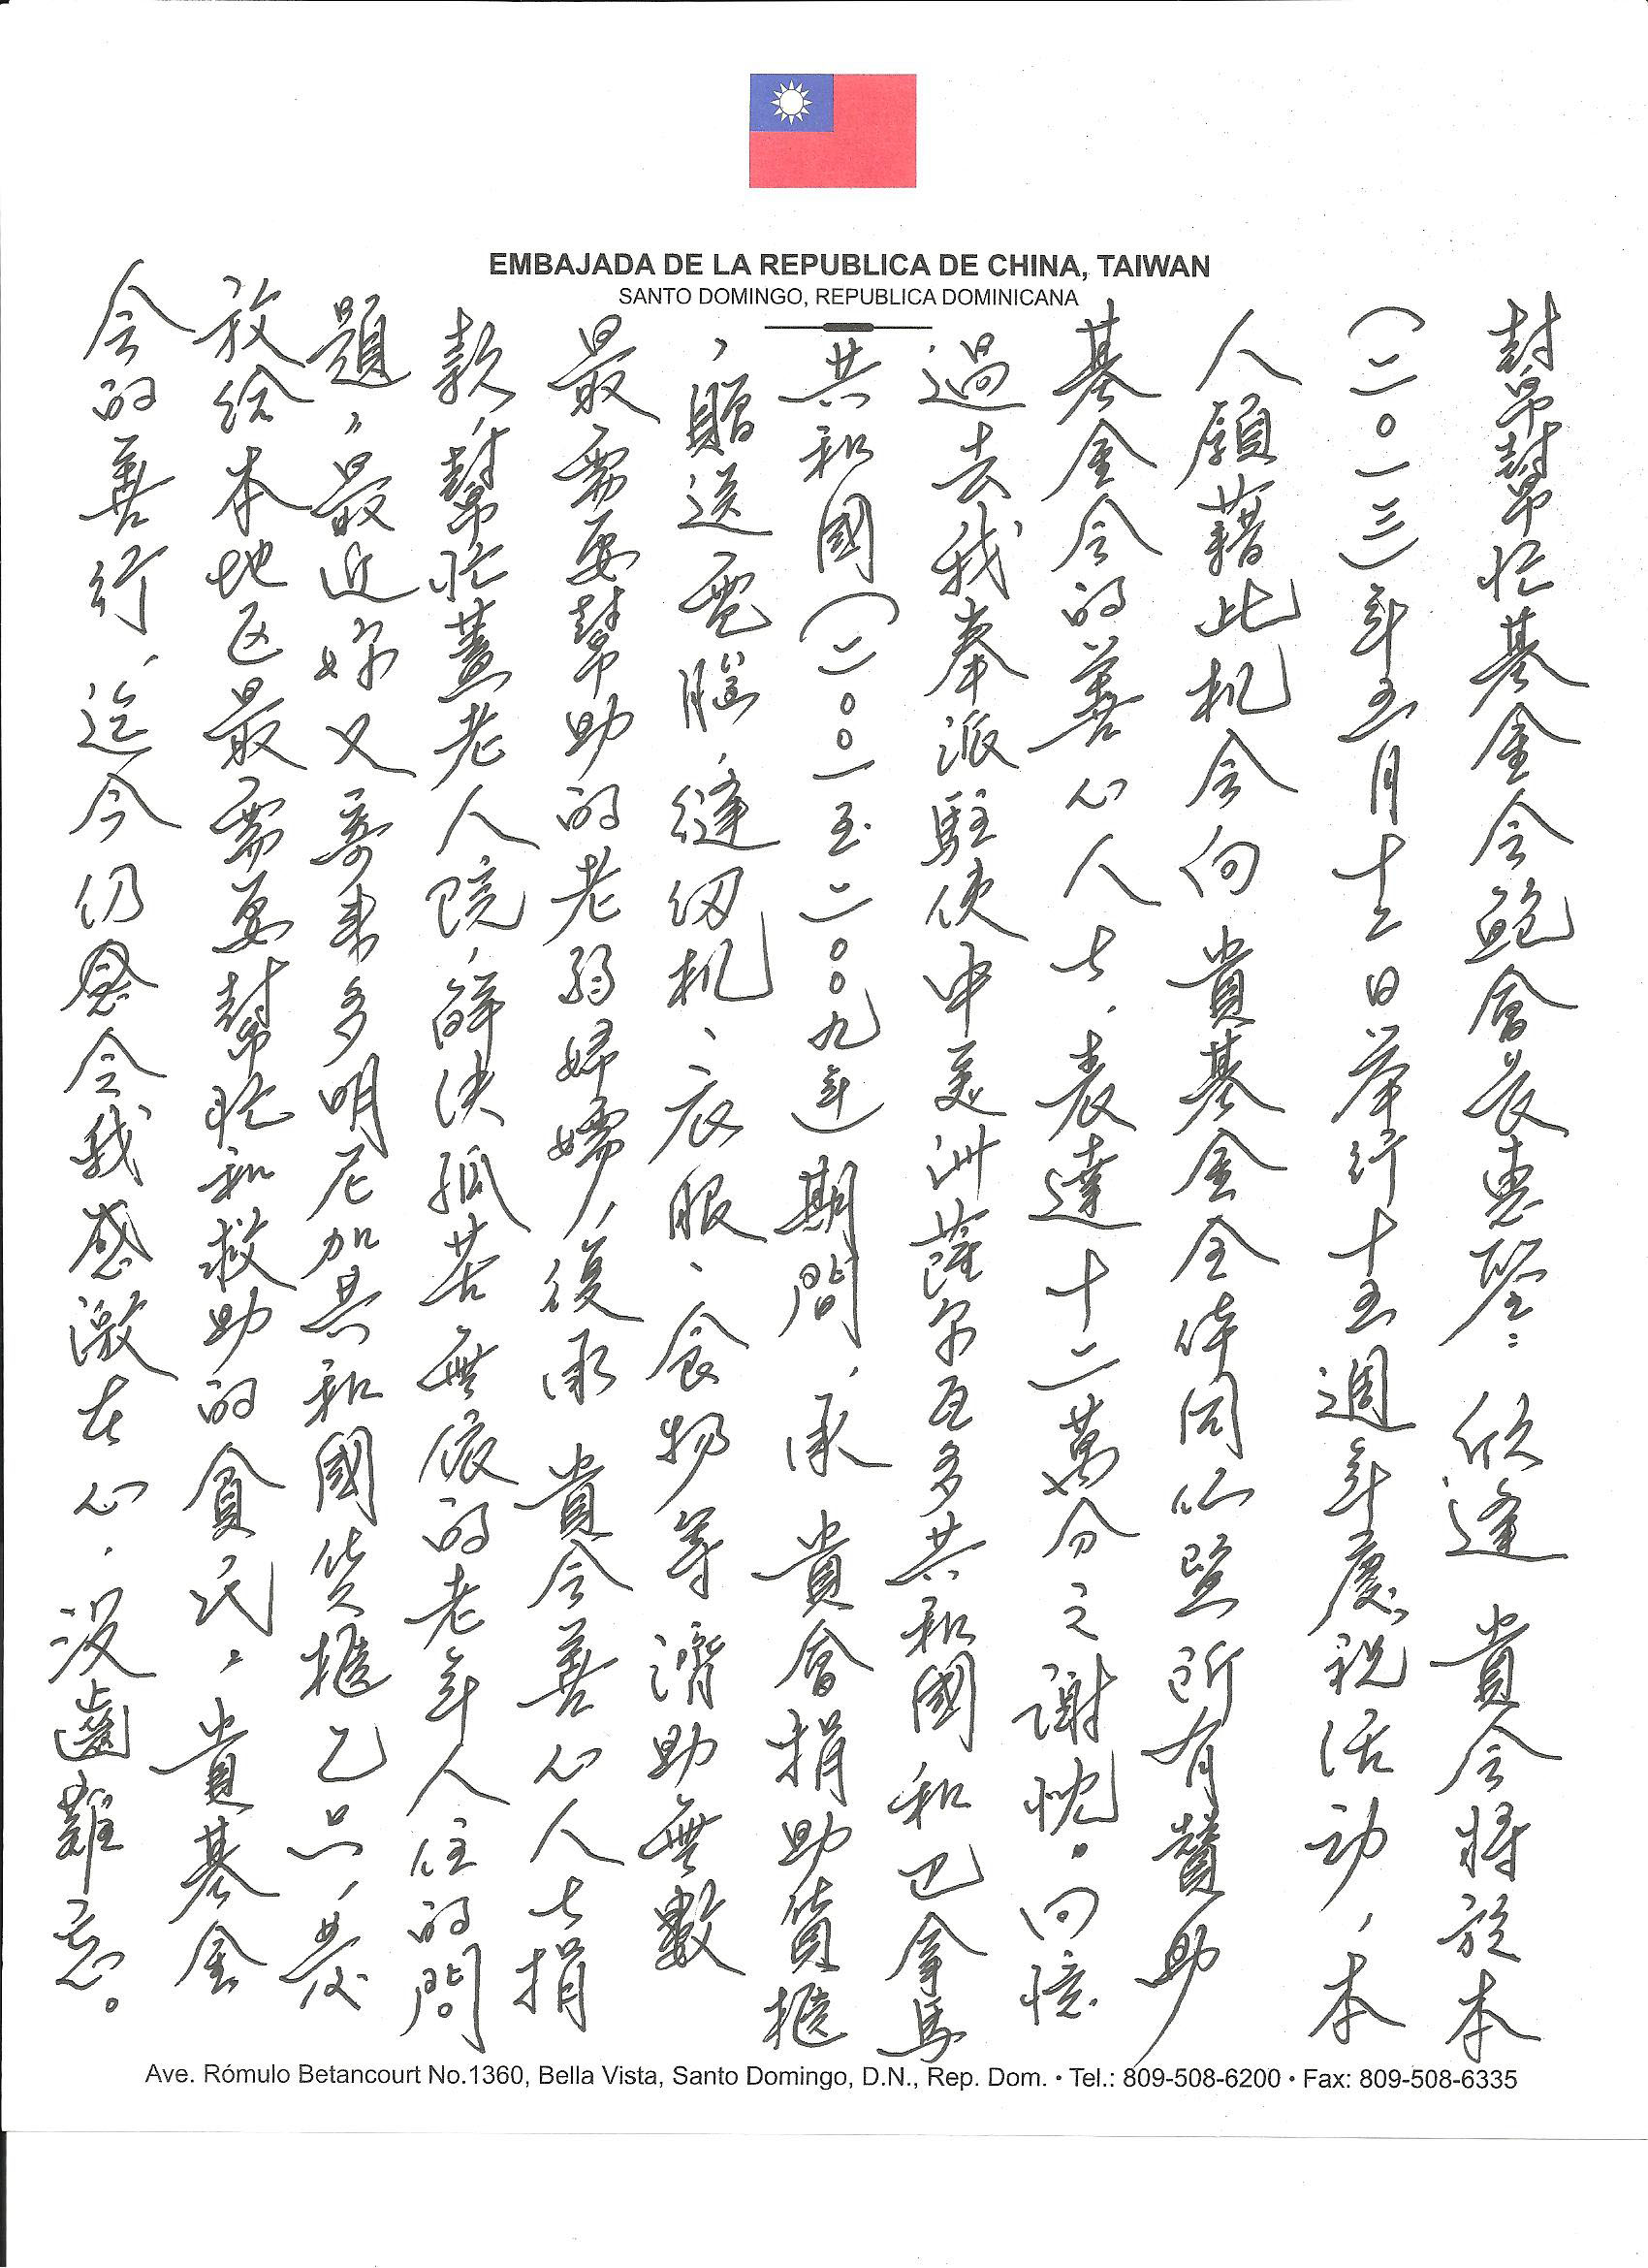 EMBAJADA DE LA REPUBLICA DE CHINA, TAIWAN
SANTO DOMINGO, REPUBLICA DOMINICANA
幫幫忙基金会鮑會長惠鑒：欣逢 貴会將於本
（二〇一三）年五月十二日举行十五週年慶祝活动，本
人願藉此机会向 貴基金会全体同仁暨所有贊助
基金会的善心人士，表達十二萬分之謝忱。回憶
過去我奉派駐使中美洲薩尔瓦多共和國和巴拿馬
共和國（二〇〇一至二〇〇九年）期間，承 貴會捐助貨櫃
，贈送電腦、縫纫机、衣服、食物等濟助無數
最需要幫助的老弱婦孺，復承 貴会善心人士捐
款，幫忙蓋老人院，解決孤苦無依的老年人住的問
題，最近妳又寄来多明尼加共和國货櫃乙只，发
放给本地区最需要幫忙和救助的貧民，貴基金
会的善行，迄今仍令我感激在心，没齒難忘。
Ave. Rómulo Betancourt No.1360, Bella Vista, Santo Domingo, D.N., Rep. Dom. • Tel.: 809-508-6200 • Fax: 809-508-6335